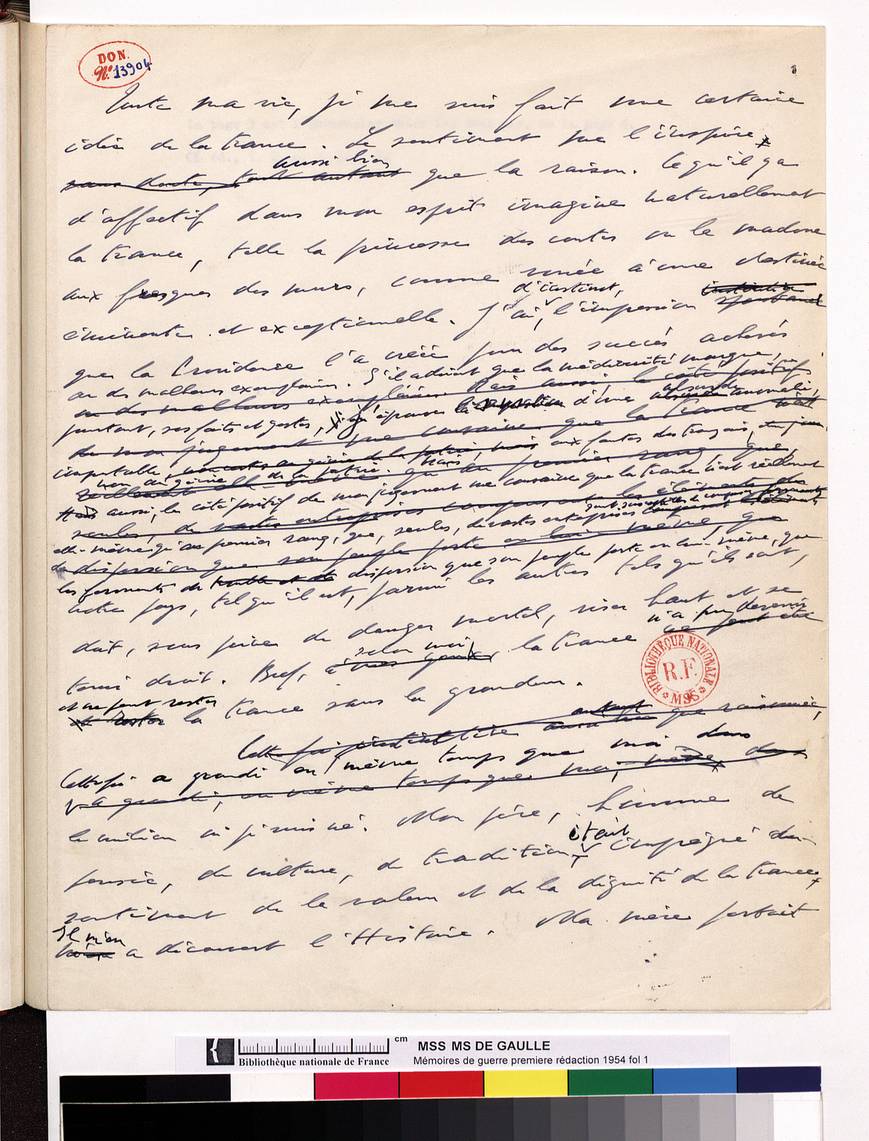 DON.
No. 13904
Toute ma vie, je me suis fait une certaine
idée de la France. Le sentiment me l'inspire
aussi bien
sans doute, tout autant que la raison. Ce qu'il y a
d'affectif dans mon esprit imagine naturellement
la France, telle la princesse des contes ou la madone
aux fresques des murs, comme vouée à une destinée
d'instinct,
éminente et exceptionnelle. J'ai l'impression
que la Providence l'a créée pour des succès achevés
ou des malheurs exemplaires. S'il advient que la médiocrité marque,
ou des malheurs exemplaires. Mais aussi, le côté positif
pourtant, ses faits et gestes, j'en éprouve la sensation d'une absurde anomalie,
de mon jugement me convainc que la France
imputable aux fautes des Français,
non au génie de la patrie. Mais
aussi, le côté positif de mon jugement me convainc que la France n'est réellement
seules, de vastes entreprises
elle-même qu'au premier rang; que, seules, de vastes entreprises sont susceptibles de compenser
la dispersion que son peuple porte en lui-même; que
les ferments de dispersion que son peuple porte en lui-même; que
notre pays, tel qu'il est, parmi les autres, tels qu'ils sont,
doit, sous peine de danger mortel, viser haut et se
n'a pu devenir
selon moi,
tenir droit. Bref, à mes yeux, la France ne peut être
et ne peut rester
la France sans la grandeur.
BIBLIOTHÈQUE NATIONALE
R.F.
MSS
Cette foi
Cette foi a grandi en même temps que moi dans
a grandi, en même temps que moi, dans
le milieu où je suis né. Mon père, homme de
était
pensée, de culture, de tradition, imprégné du
sentiment de la valeur et de la dignité de la France,
Il m'en
a découvert l'Histoire. Ma mère portait
cm
Bibliothèque nationale de France
MSS MS DE GAULLE
Mémoires de guerre premiere rédaction 1954 fol 1